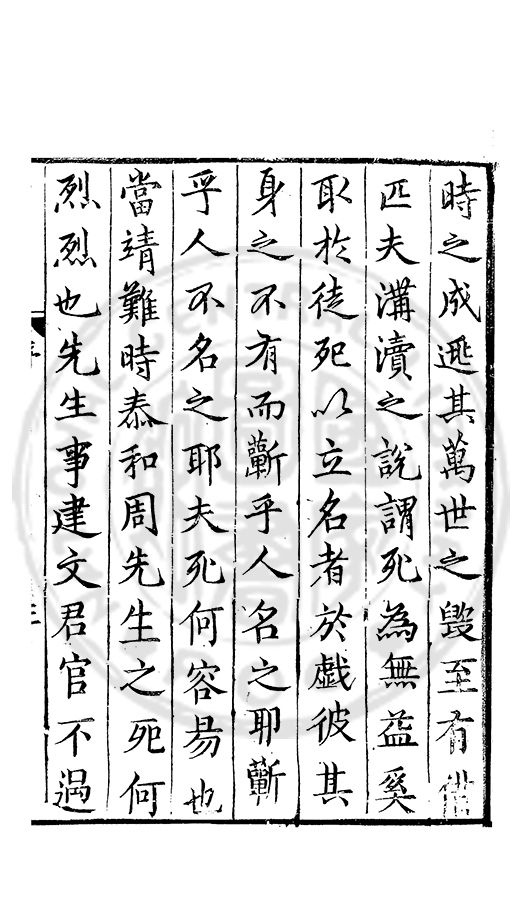 時之成遜其萬世之毀至有借
匹夫溝瀆之說謂死為無益奚
取於徒死以立名者於戯彼其
身之不有而蘄乎人名之耶蘄
乎人不名之耶夫死何容昜也
當靖難時泰和周先生之死何
烈烈也先生事建文君官不過